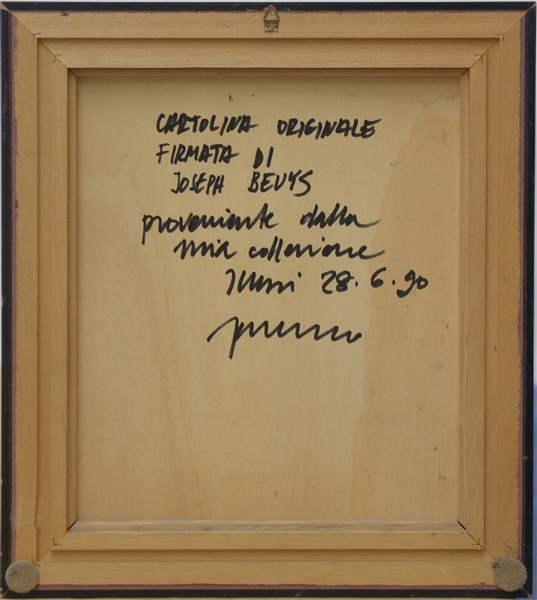 CARTOLINA ORIGINALE
FIRMATA DI
JOSEPH BEUYS
proveniente dalla
mia collezione
28.6.90